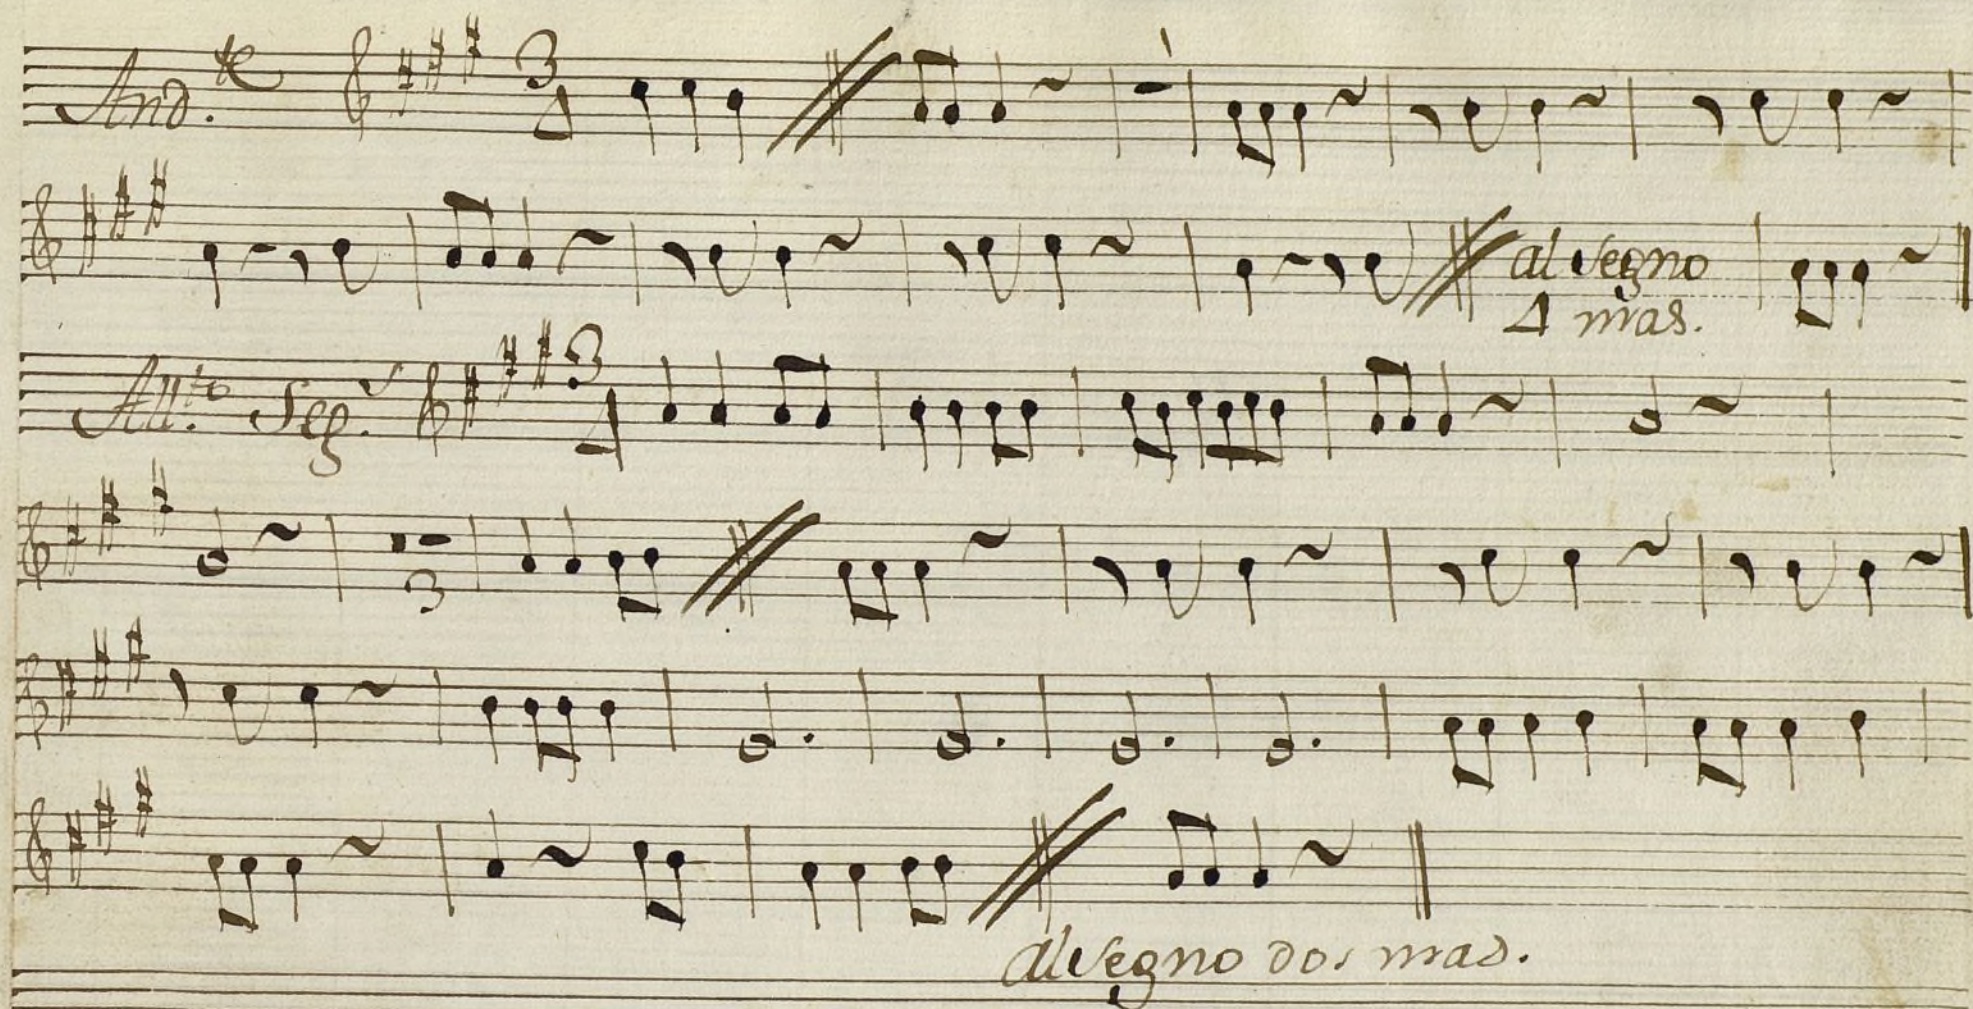 And.te 3 4 1
al segno
4 mas.
All.to Seg.s 3 4
3
al segno dos mas.